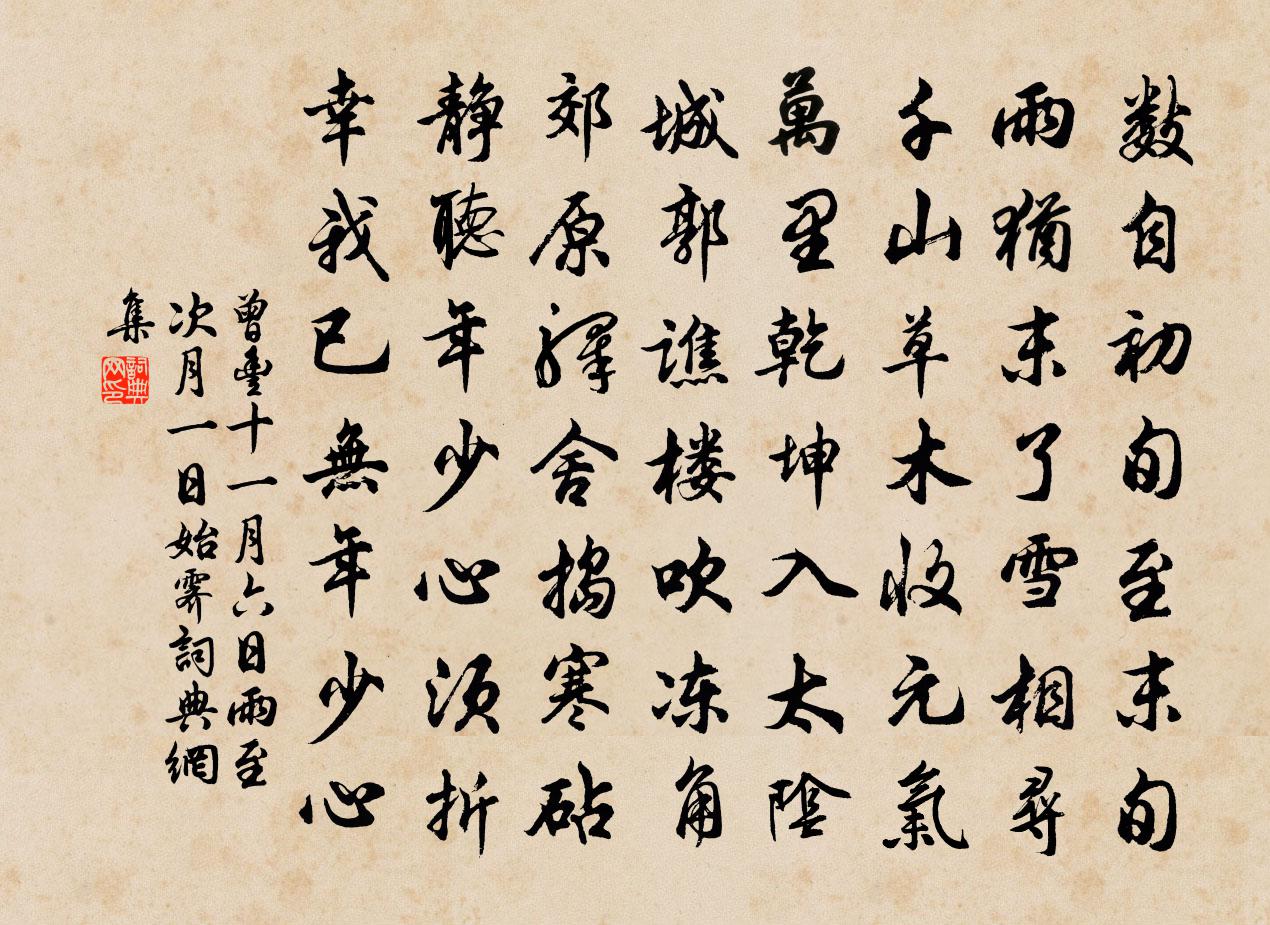 數自初旬至末旬
雨猶末了雪相尋
千山草木收元氣
萬里乾坤入太陰
城郭譙楼吹冻角
郊原驛舍搗寒砧
靜聽年少心須折
幸我已無年少心
曾豐十一月六日雨至
次月一日始霽詞典網
集
詞典网印